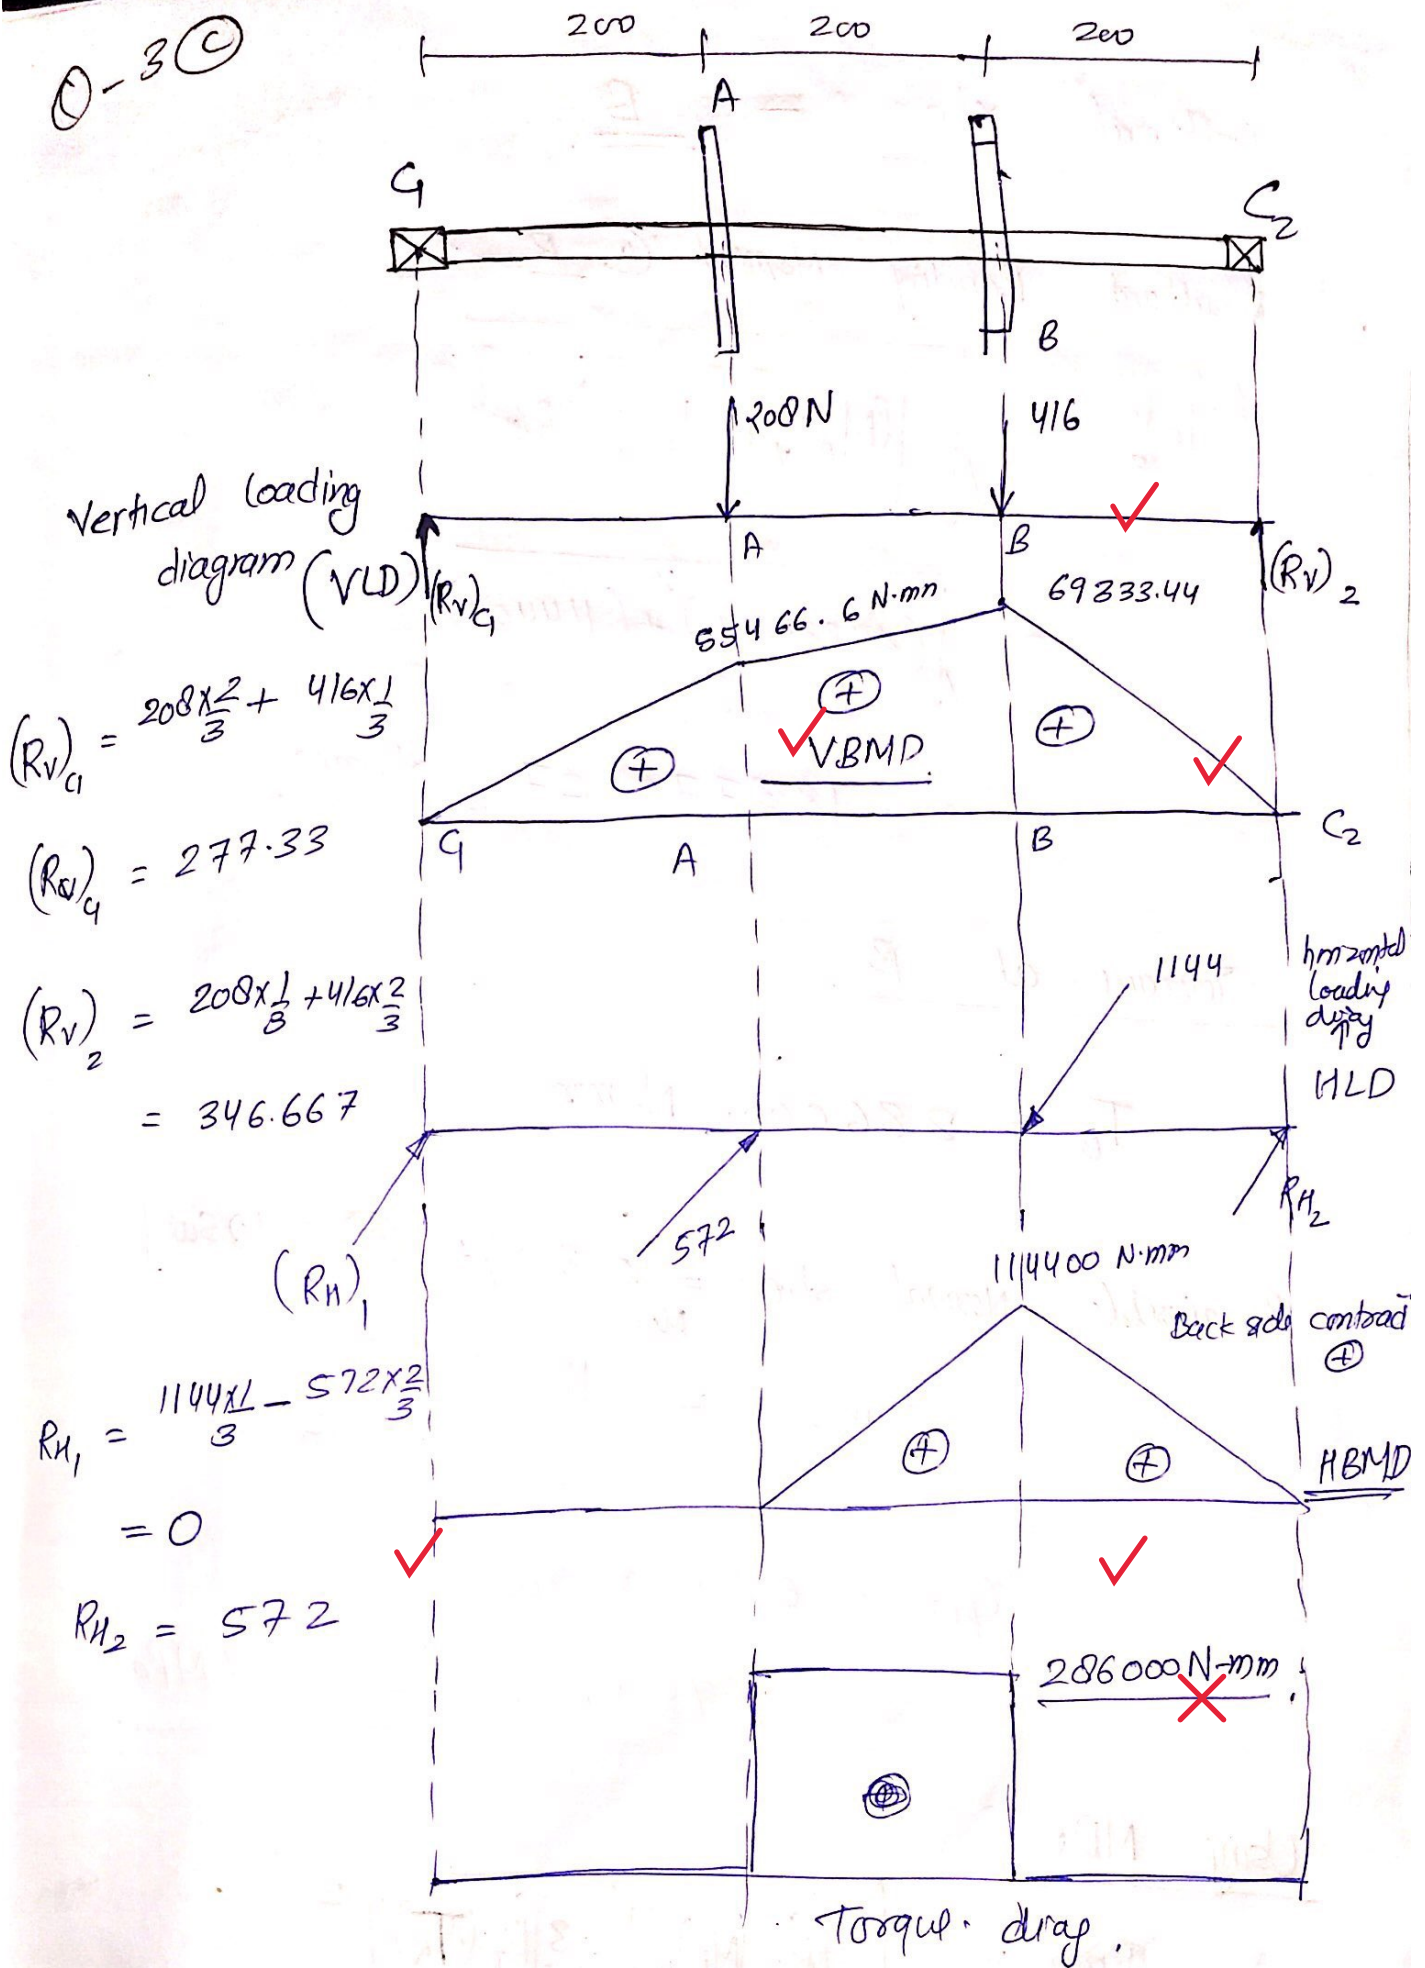 Q-3 (C)
200 200 200
A
C1
C2
B
208N
416
Vertical loading
diagram (VLD)
(Rv)C1
A
B
(Rv)2
55466.6 N·mm
69333.44
(Rv)C1 = 208×2/3 + 416×1/3
+
+
+
VBMD
C1
A
B
C2
(Rv)C1 = 277.33
(Rv)2 = 208×1/3 + 416×2/3
= 346.667
1144
horizontal
loading
diag
HLD
(RH)1
572
RH2
114400 N·mm
Back side contract
+
RH1 = 1144×1/3 - 572×2/3
+
+
HBMD
= 0
RH2 = 572
286000 N-mm
Torque. diag.